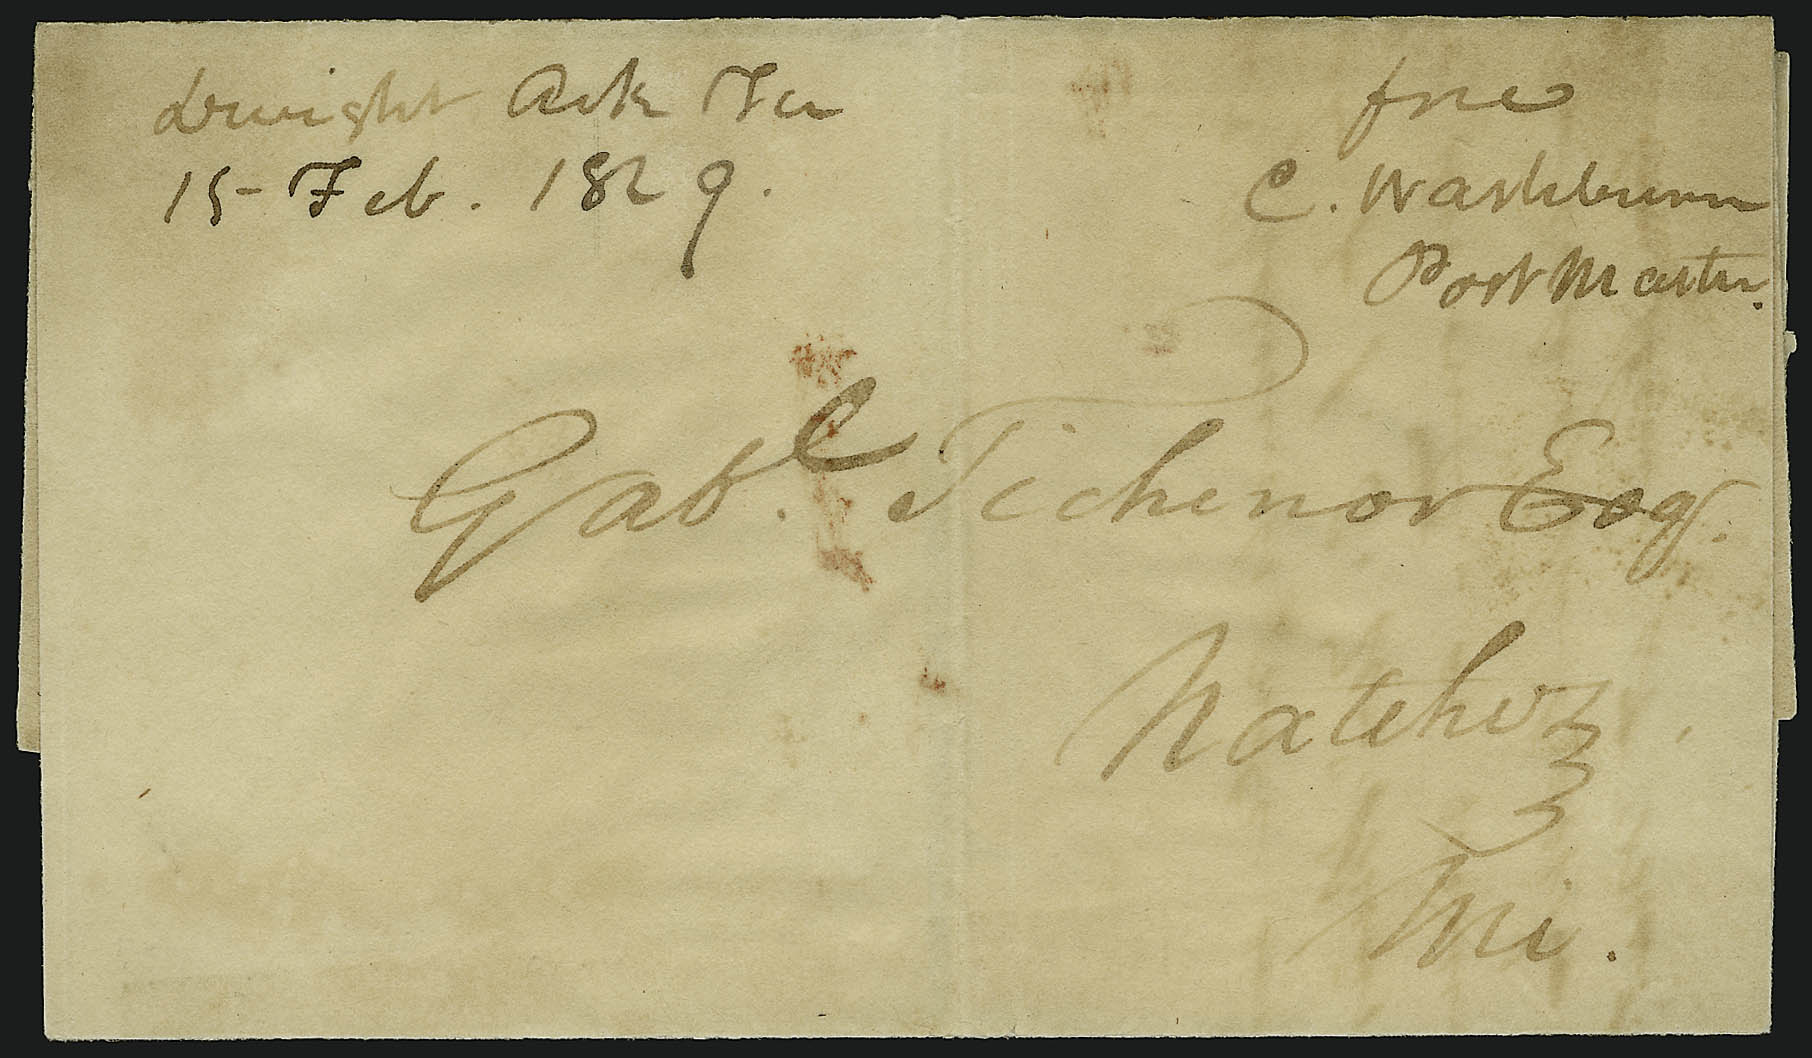 Dwight Ark Ter
15 Feb. 1829.
free
C. Washburn
Post Master.
Gab.l Tichenor Esq.
Natchez
Mi.